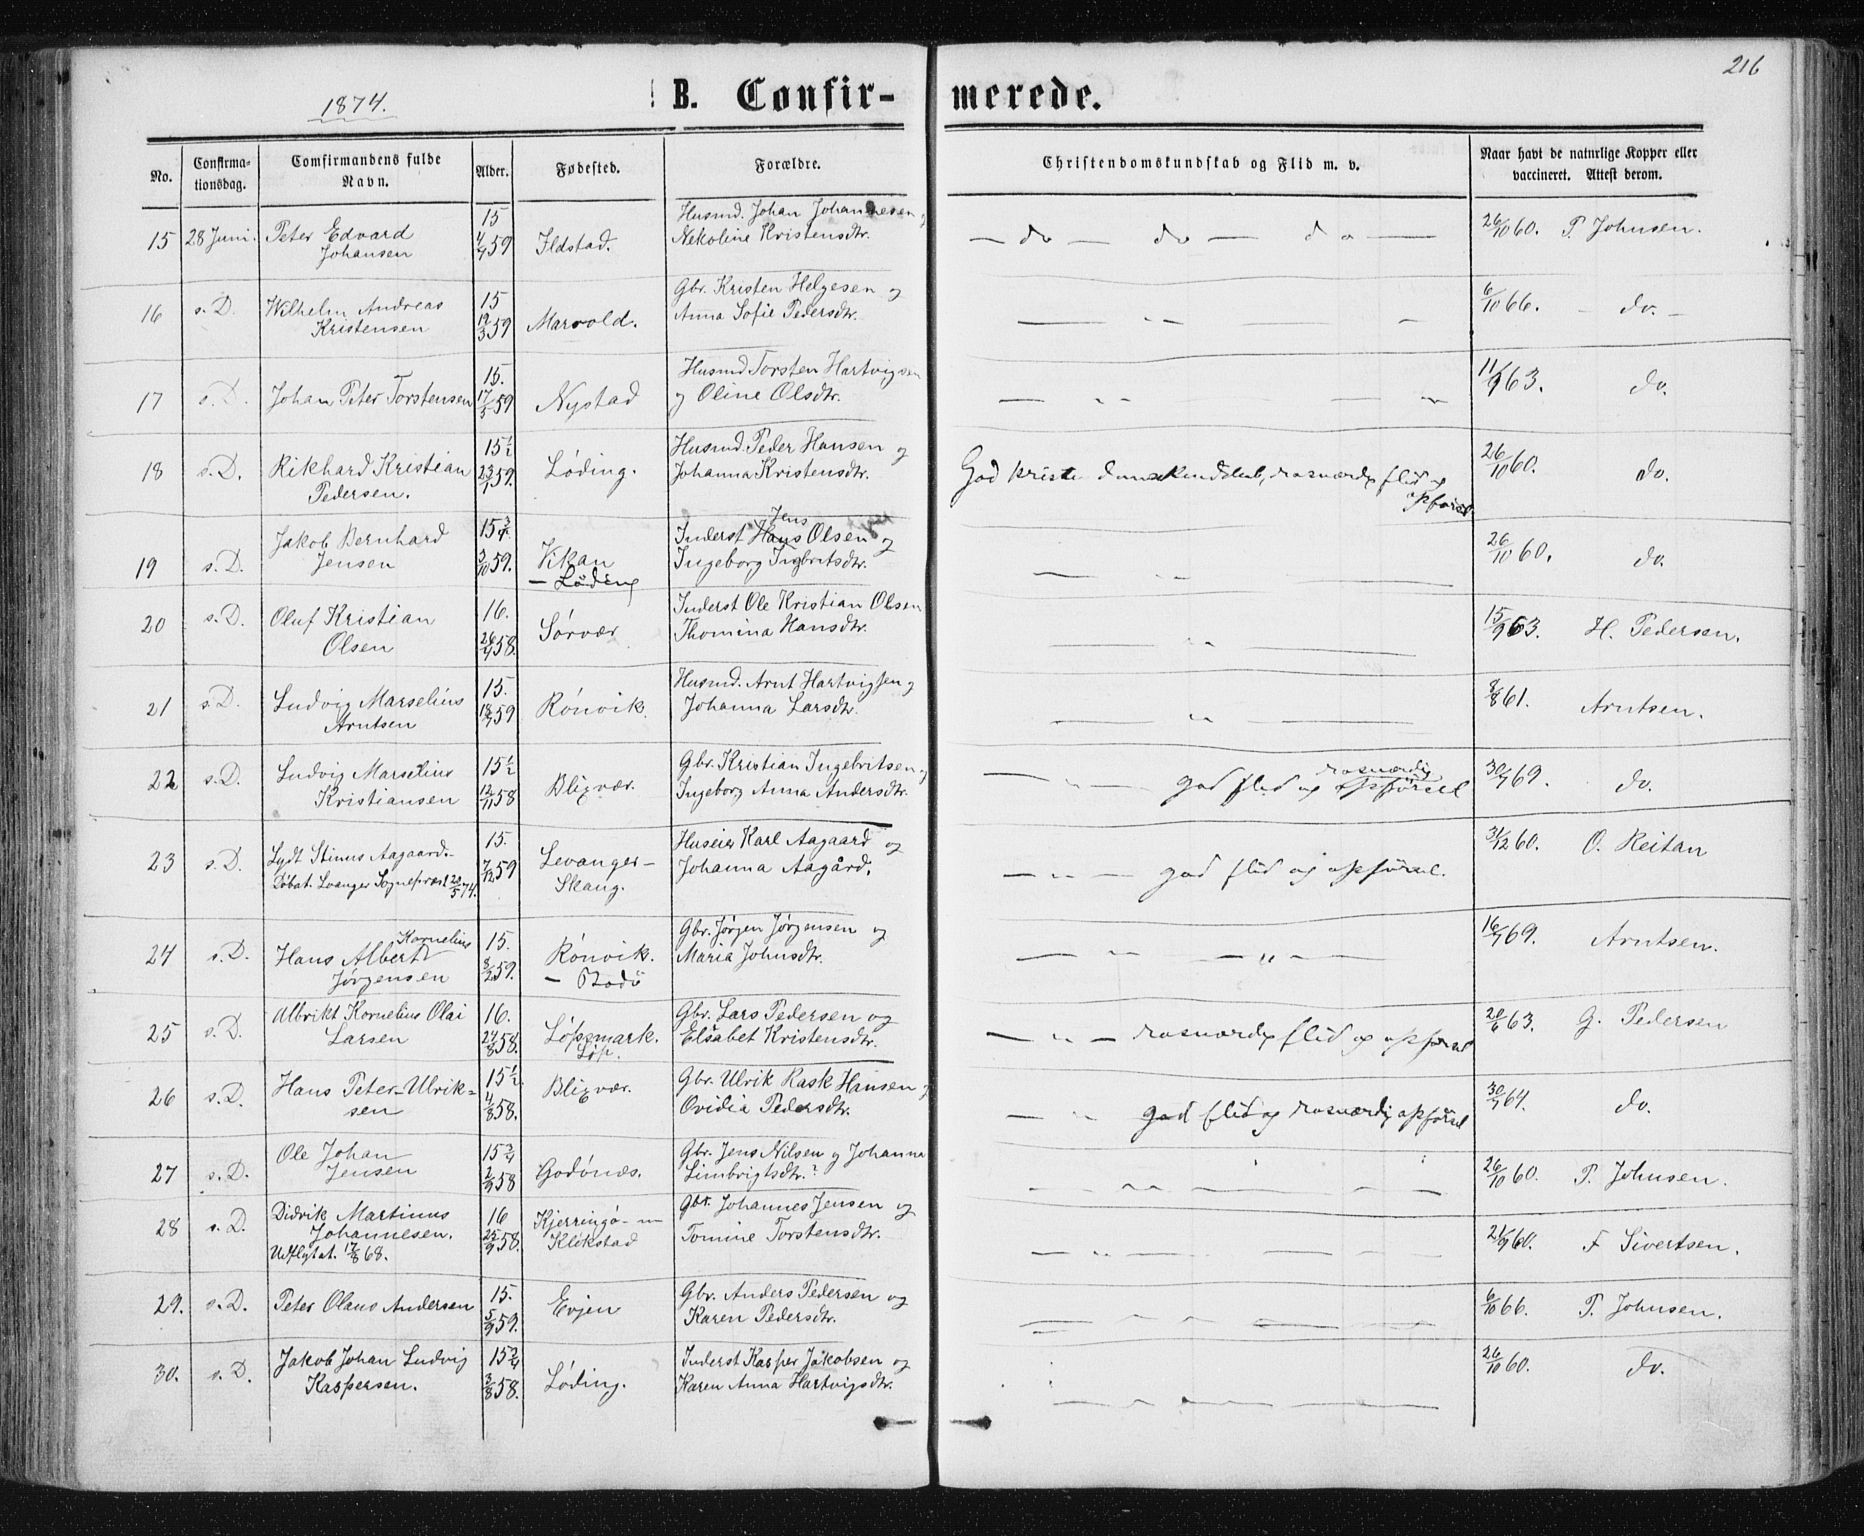 216
1874.
B. Confirmerede.
No.
Confirmationsdag.
Comfirmandens fulde Navn.
Alder.
Fødested.
Forældre.
Christendomskundskab og Flid m. v.
Naar havt de naturlige Kopper eller vaccineret. Attest derom.
15 28 Juni. Peter Edvard Johansen 15 59 Ildstad. Husmd. Johan Johannesen og Nekoline Kristensdtr. — do — do — do — 26/10 60. P. Johnsen.
16 s.D. Wilhelm Andreas Kristensen 15 19/3 59 Marvold. Gbr. Kristen Helgesen og Anna Sofie Pedersdtr. — " — 6/10 66. — do. —
17 s.D. Johan Peter Torstensen 15. 17/5 59 Nystad Husmd Torsten Hartvigsen og Oline Olsdtr. — " — " 11/9 63. do.
18 s.D. Rikhard Kristian Pedersen. 15 1/2 23/1 59. Løding. Husmd. Peder Hansen og Johanna Kristensdtr. God kristendomskundskab, rosværdig flid og opførsel. 26/10 60. do.
19 s.D. Jakob Bernhard Jensen 15 3/4. 3/10 59. Vikan — Løding Inderst Jens Hans Olsen og Ingeborg Ingbritsdtr. — " — 26/10 60. do.
20 s.D. Oluf Kristian Olsen 16. 58. Sørvær Inderst Ole Kristian Olsen Thomina Hansdtr. — " — 15/9 63. H. Pedersen.
21 s.D. Ludvig Marselius Arntsen 15. 59 Rönvik. Husmd. Arnt Hartvigsen og Johanna Larsdtr. — " — 8/8 61. Arntsen.
22 s.D. Ludvig Marselius Kristiansen 15 1/2 12/11 58 Blixvær. Gbr. Kristian Ingebritsen og Ingeborg Anna Andersdtr. — " — god flid og rosværdig opførsel 30/7 69. do.
23 s.D. Lydt Stinus Aagaard. Døbat. Levanger Sognepræst 20/5 74. 15. 7/12 59 Levanger— Skang. Huseier Karl Aagaard og Johanna Aagård. — " — god flid og opførsel. 31/12 60. O. Reitan
24 s.D. Hans Albert Kornelius Jørgensen 15. 8/2 59. Rönvik. — Bodö Gbr. Jørgen Jørgensen og Maria Johnsdtr. — " — " — 16/7 69. Arntsen.
25 s.D. Albrikt Kornelius Olai Larsen 16. 24/8 58. Løpsmark. Løp. Gbr. Lars Pedersen og Elsabet Kristensdtr. — " — rosværdig flid og opførsel 20/6 63. G. Pedersen
26 s.D. Hans Peter Ulriksen 15 1/2 4/8 58. Blixvær. Gbr. Ulrik Rask Hansen og Ovidia Pedersdtr. — " — god flid og rosværdig opførsel 30/7 64. do.
27 s.D. Ole Johan Jensen 15 3/4 2/9 58 Godönæs. Gbr. Jens Nilsen og Johanna Limbrigtsdtr.? — " — 26/10 60. P. Johnsen.
28 s.D. Didrik Martinus Johannesen. Udflytat. 17/8 68. 16 25/9 58. Kjerringö— Klokstad Gbr. Johannes Jensen og Tomine Torstensdtr. — " — 21/9 60. F Sivertsen.
29. s.D. Peter Olaus Andersen 15. 5/9 59. Evjen Gbr. Anders Pedersen og Karen Pedersdtr. — " — 6/10 66. P. Johnsen.
30. s.D. Jakob Johan Ludvig Kaspersen. 15 3/4 3/8 58. Løding. Inderst Kasper Jakobsen og Karen Anna Hartvigsdtr. — " — 26/10 60. do.